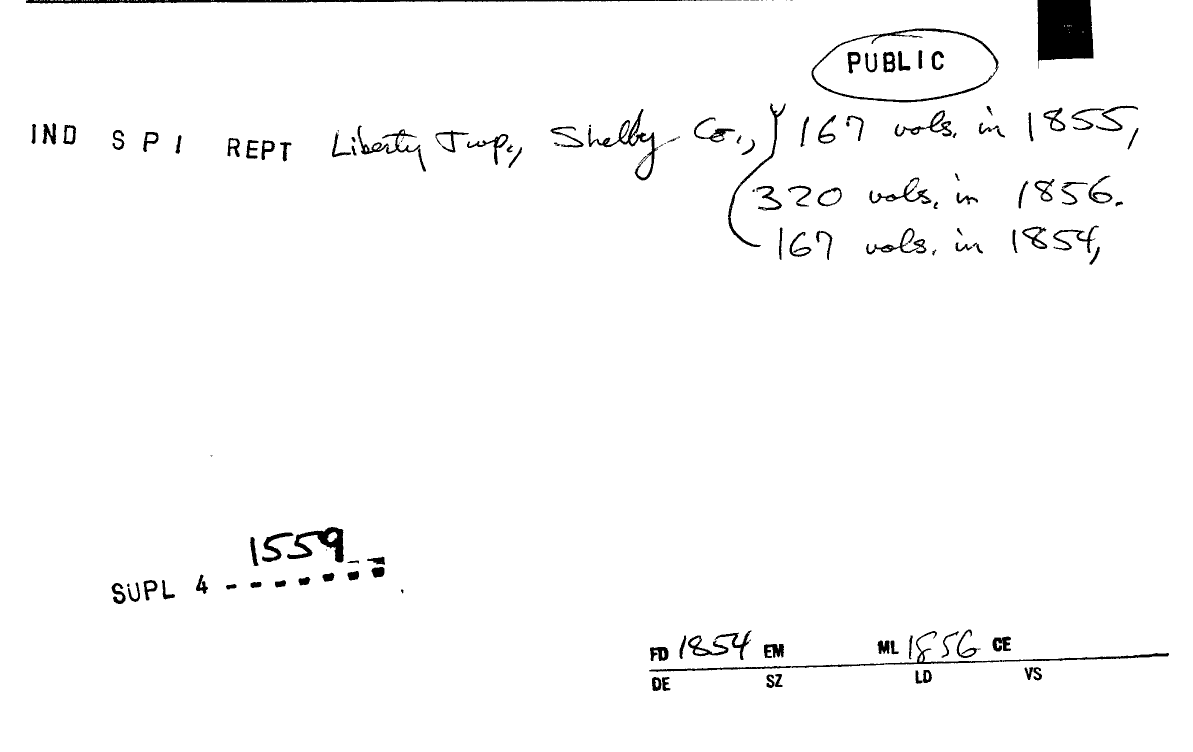 PUBLIC
IND S P I REPT Liberty Twp., Shelby Co., 167 vols. in 1855,
320 vols. in 1856.
167 vols. in 1854,
1559
SUPL 4 - - - - - - -
FD 1854 EM ML 1856 CE
DE SZ LD VS